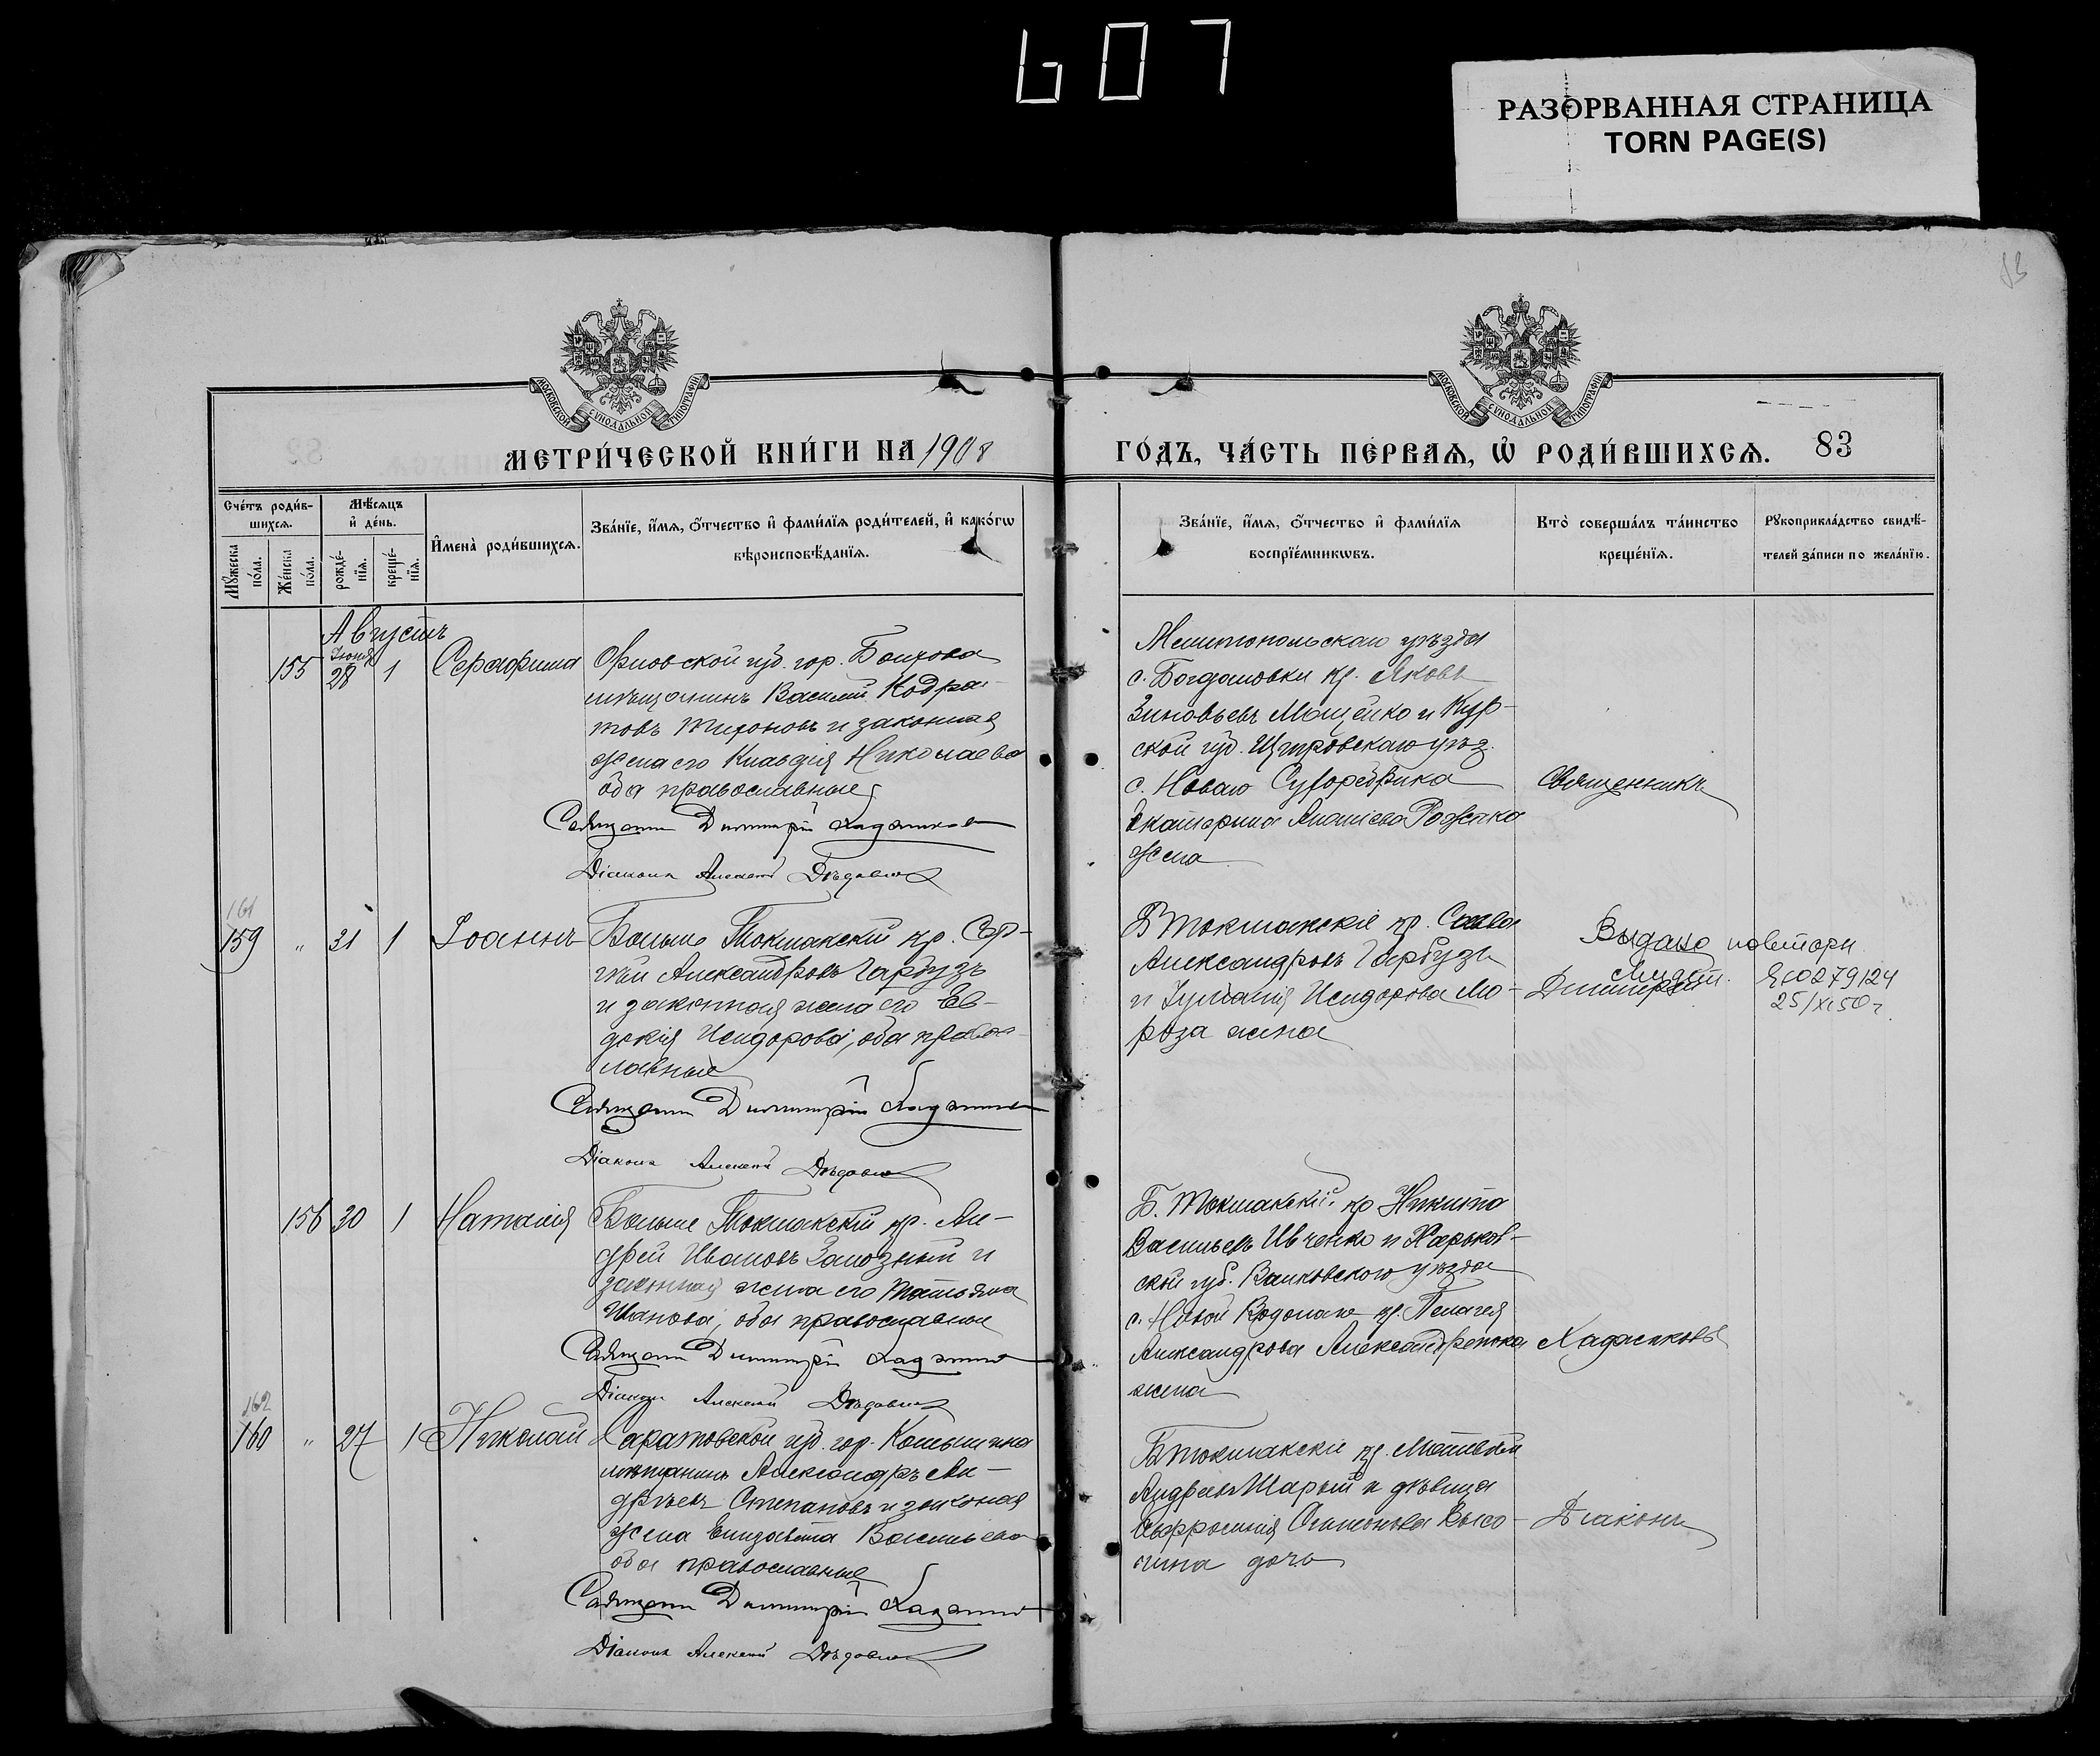 607
РАЗОРВАННАЯ СТРАНИЦА
TORN PAGE(S)
83
МОСКОВСКОЙ СѴНОДАЛЬНОЙ ТИПОГРАФІИ
МОСКОВСКОЙ СѴНОДАЛЬНОЙ ТИПОГРАФІИ
МЕТРИ́ЧЕСКОЙ КНИ́ГИ НА 1908
ГО́ДЪ, ЧА́СТЬ ПЕ́РВАѦ, Ѡ҆ РОДИ́ВШИХСѦ. 83
Сче́тъ роди́в-
шихсѧ.
Мѣ́сѧцъ
и҆ де́нь.
Мꙋ́жеска
по́ла.
Же́нска
по́ла.
рожде́-
нїѧ.
креще́-
нїѧ.
И҆мена̀ роди́вшихсѧ.
Зва́нїе, и҆́мѧ, ѻ҆́тчество и҆ фами́лїѧ роди́телей, и҆ како́гѡ
вѣроисповѣ́данїѧ.
Зва́нїе, и҆́мѧ, ѻ҆́тчество и҆ фами́лїѧ
воспрїе́мникѡвъ.
Кто̀ соверша́лъ та́инство
креще́нїѧ.
Рꙋкоприкла́дство свидѣ́-
телей за́писи по жела́нїю.
Августъ
Іюня
155 28 1 Серафима
Орловской губ. гор. Болхова
мѣщанинъ Василій Кодра-
товъ Тихоновъ и законная
жена его Клавдія Николаева
оба православные
Священникъ Димитрій Хаджиковъ
Діаконъ Алексей Дѣдовъ
Мелитопольскаго уѣзда
с. Богдановки кр. Яковъ
Зиновьевъ Мощенко и Кур-
ской губ. Щигровскаго уѣз.
с. Новаго
Екатерина Ананіева
жена
Священникъ
161
159 " 31 1 Іоаннъ
Больше Токмакскій кр. Сер-
гѣй Александровъ Гарбузъ
и законная жена его Ев-
докія Исидорова, оба правос-
лавные
Священникъ Димитрій Хаджиковъ
Діаконъ Алексей Дѣдовъ
БТокмакскіе кр. Савва
Александровъ Гарбузъ
и Іуліанія Исидорова Мо-
роза жена
Димитрій
Выдано повторн
свидет. 0279124
25/XI 50 г.
156 30 1 Наталія
Больше Токмакскій кр. Ан-
дрей Ивановъ Залозный и
законная жена его Татьяна
Иванова, оба православные
Священникъ Димитрій Хаджиковъ
Діаконъ Алексей Дѣдовъ
Б. Токмакскій кр Никита
Васильевъ Ивченко и Харьков-
ской губ. Валковского уѣзда
с. Новой Водолаги кр. Пелагея
Александрова Александренкова
жена
Хаджиковъ
162
160 " 27 1 Николай
Саратовской губ. гор. Камышина
мѣщанинъ Александръ Ан-
дреевъ Степановъ и законая
жена Елизавета Васильева
оба православные
Священникъ Димитрій Хаджиковъ
Діаконъ Алексей Дѣдовъ
БТокмакскіе кр. Матвѣй
Андреевъ Шарый и дѣвица
Евфросинія Высо-
чина дочь
Діаконъ